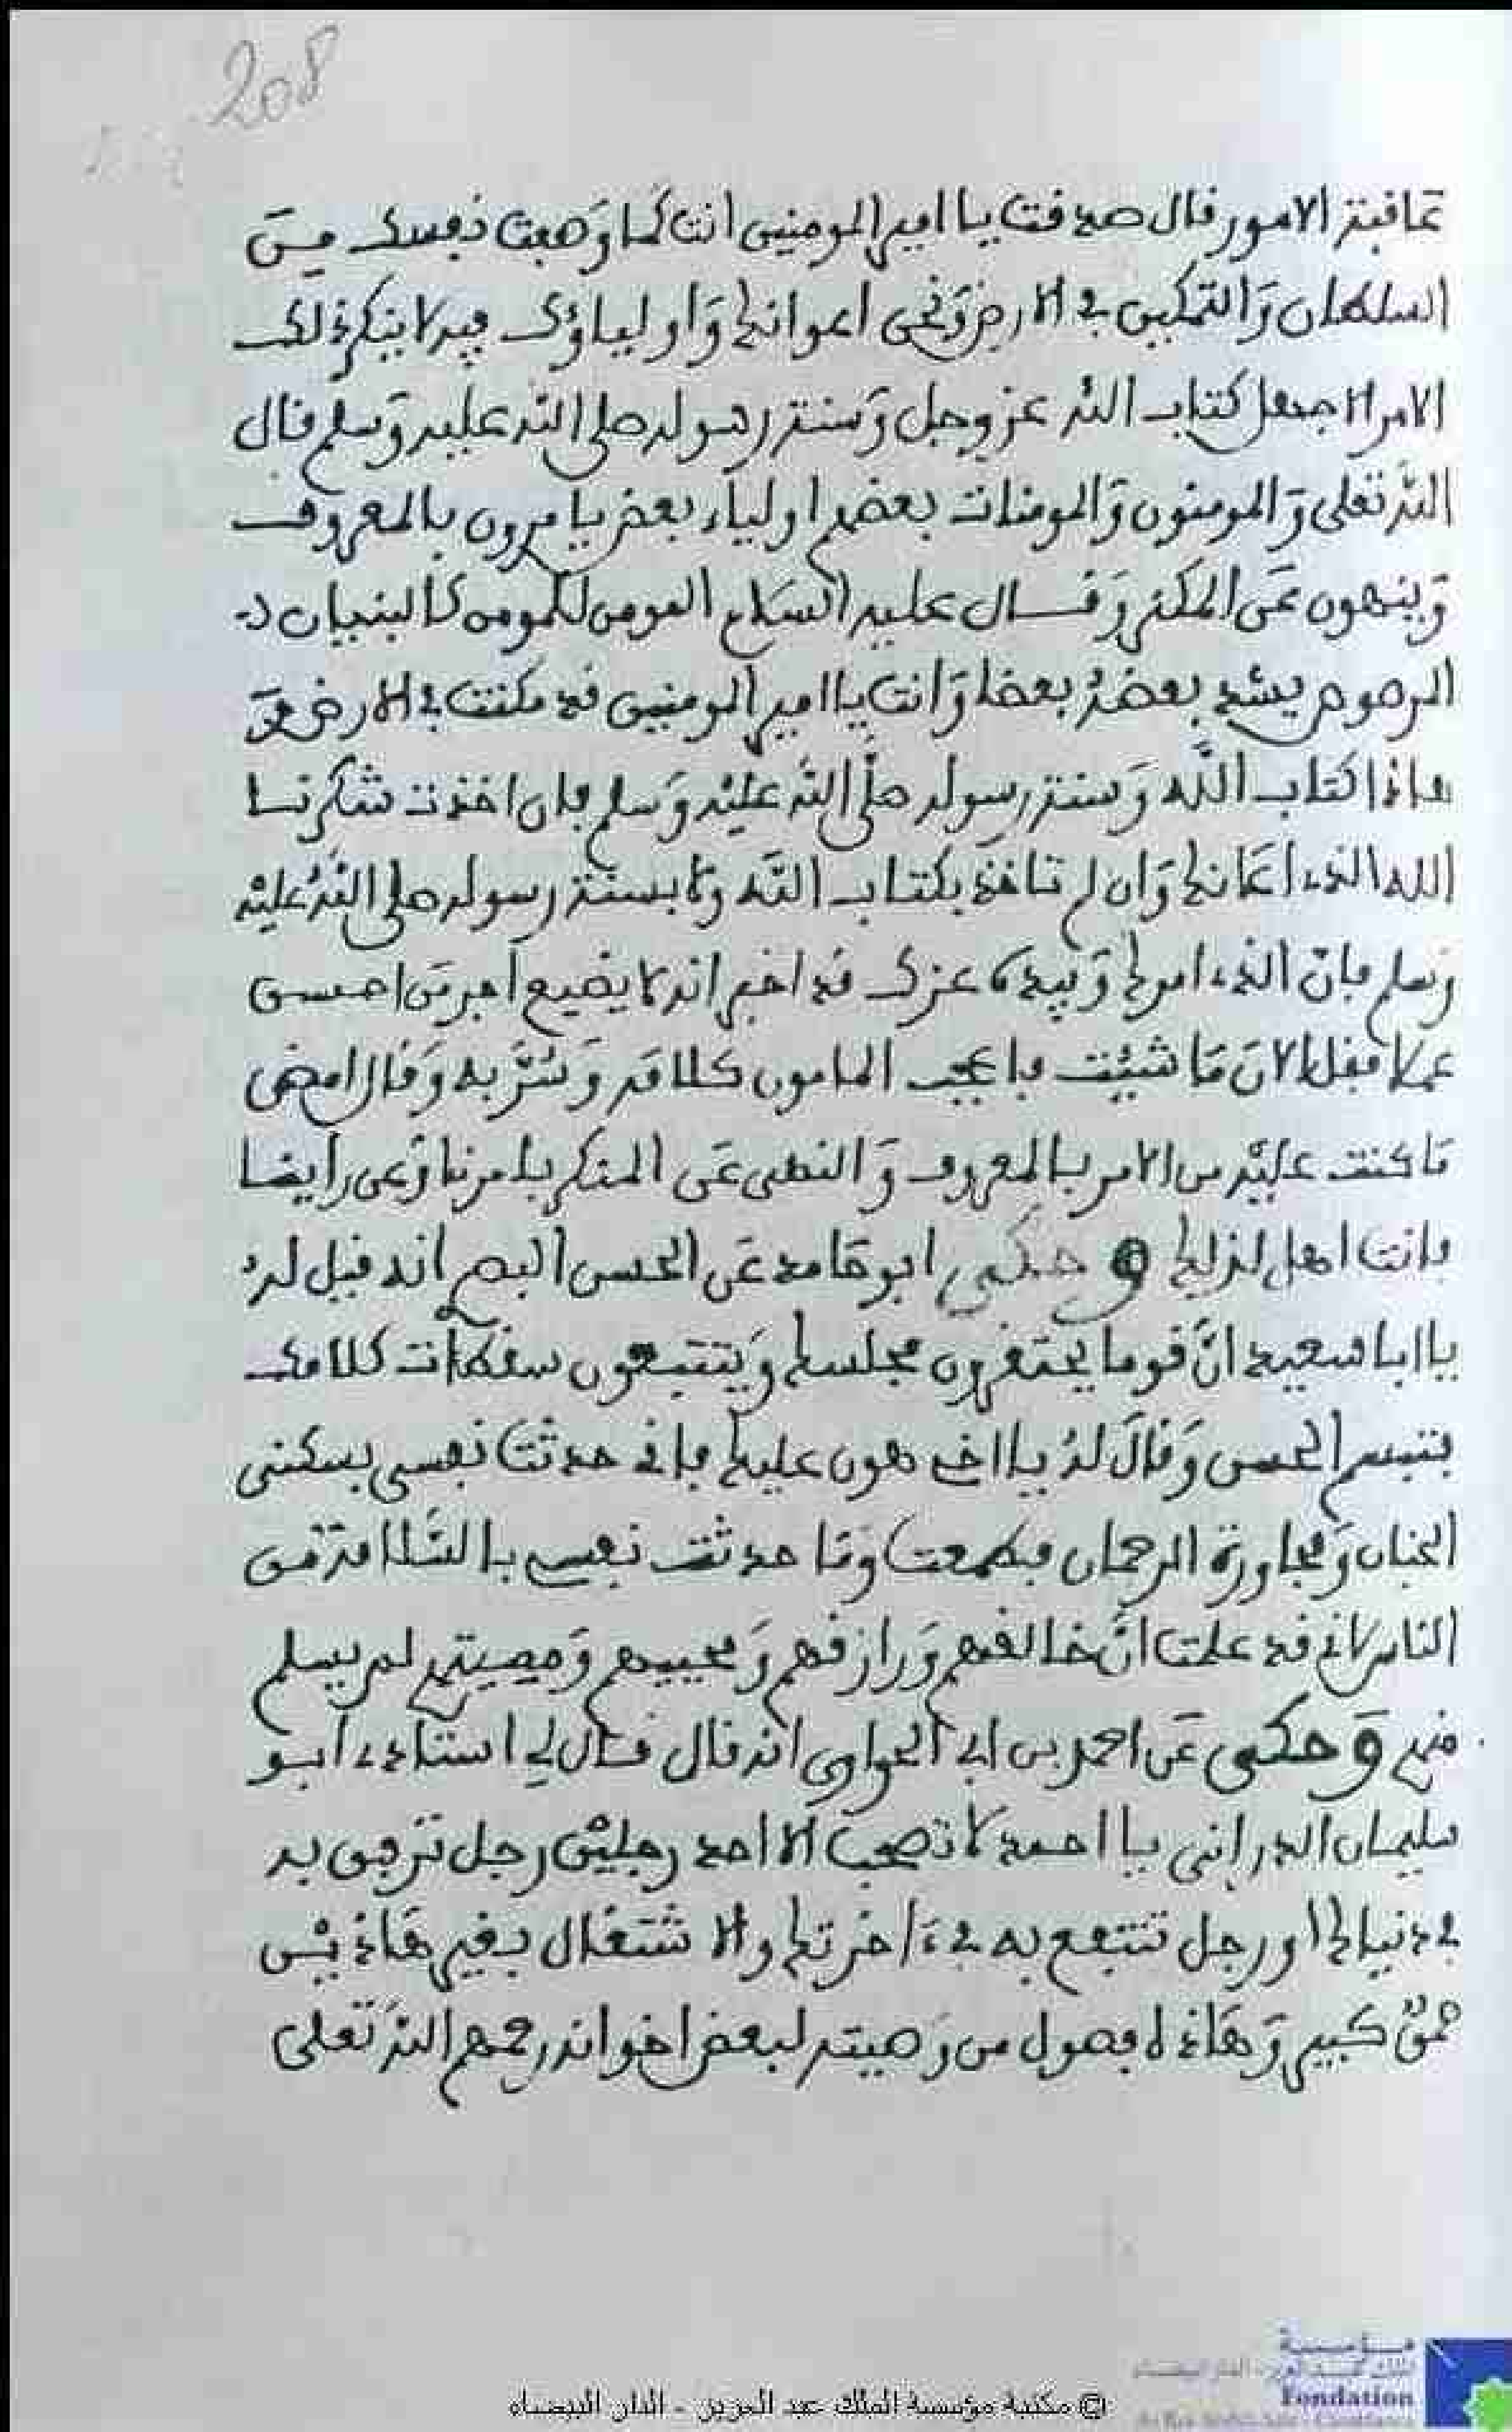 208
عاقبة الامور قال صدقت يا امير المومنين انت كما وصفت نفسك من
السلطان والتمكين في الارض ونحن اعوانك واولياؤك فيه لا ينكر ذلك
الامر الا جهل كتاب الله عز وجل وسنة رسوله صلى الله عليه وسلم قال
الله تعلى والمومنون والمومنات بعضهم اولياء بعض يامرون بالمعروف
وينهون عن المنكر وقال عليه السلام المومن للمومن كالبنيان
المرصوص يشد بعضه بعضا وانت يا امير المومنين قد مكنت في الارض
هاذا كتاب الله وسنة رسوله صلى الله عليه وسلم فان اخذت شكرت
الله الذي اعانك وان لم تاخذ بكتاب الله ولا بسنة رسوله صلى الله عليه
وسلم فان الذي امرك وبيده عزك قد اخبر انه لا يضيع اجر من احسن
عملا فقل الان ما شئت فاعجب المامون كلامه وسر به وقال امض
ما كنت عليه من الامر بالمعروف والنهى عن المنكر بامرنا وعن راينا
فانت اهل لذلك وحكى ابو حامد عن الحسن البصر انه قيل له
يا ابا سعيد ان قوما يحتقرون مجلسك ويتتبعون سقطات كلامك
فتبسم الحسن وقال له يا اخي هون عليك فاني حدثت نفسي بسكنى
الجنان ومجاورة الرحمان فطمعت وما حدثت نفسي بالسلامة من
الناس لاني قد علمت ان خالقهم ورازقهم ومحييهم ومميتهم لم يسلم
منهم وحكى عن احمد بن ابي الحواري انه قال قال لي استاذي ابو
سليمان الدراني يا احمد لا تصحب الا احد رجلين رجل ترتفق به
في دنياك او رجل تنتفع به في ءاخرتك والاشتغال بغير هاذين
حمق كبير وهاذه فصول من وصيته لبعض اخوانه رحمهم الله تعلى
مؤسسة
Fondation
© مكتبة مؤسسة الملك عبد العزيز - الدار البيضاء